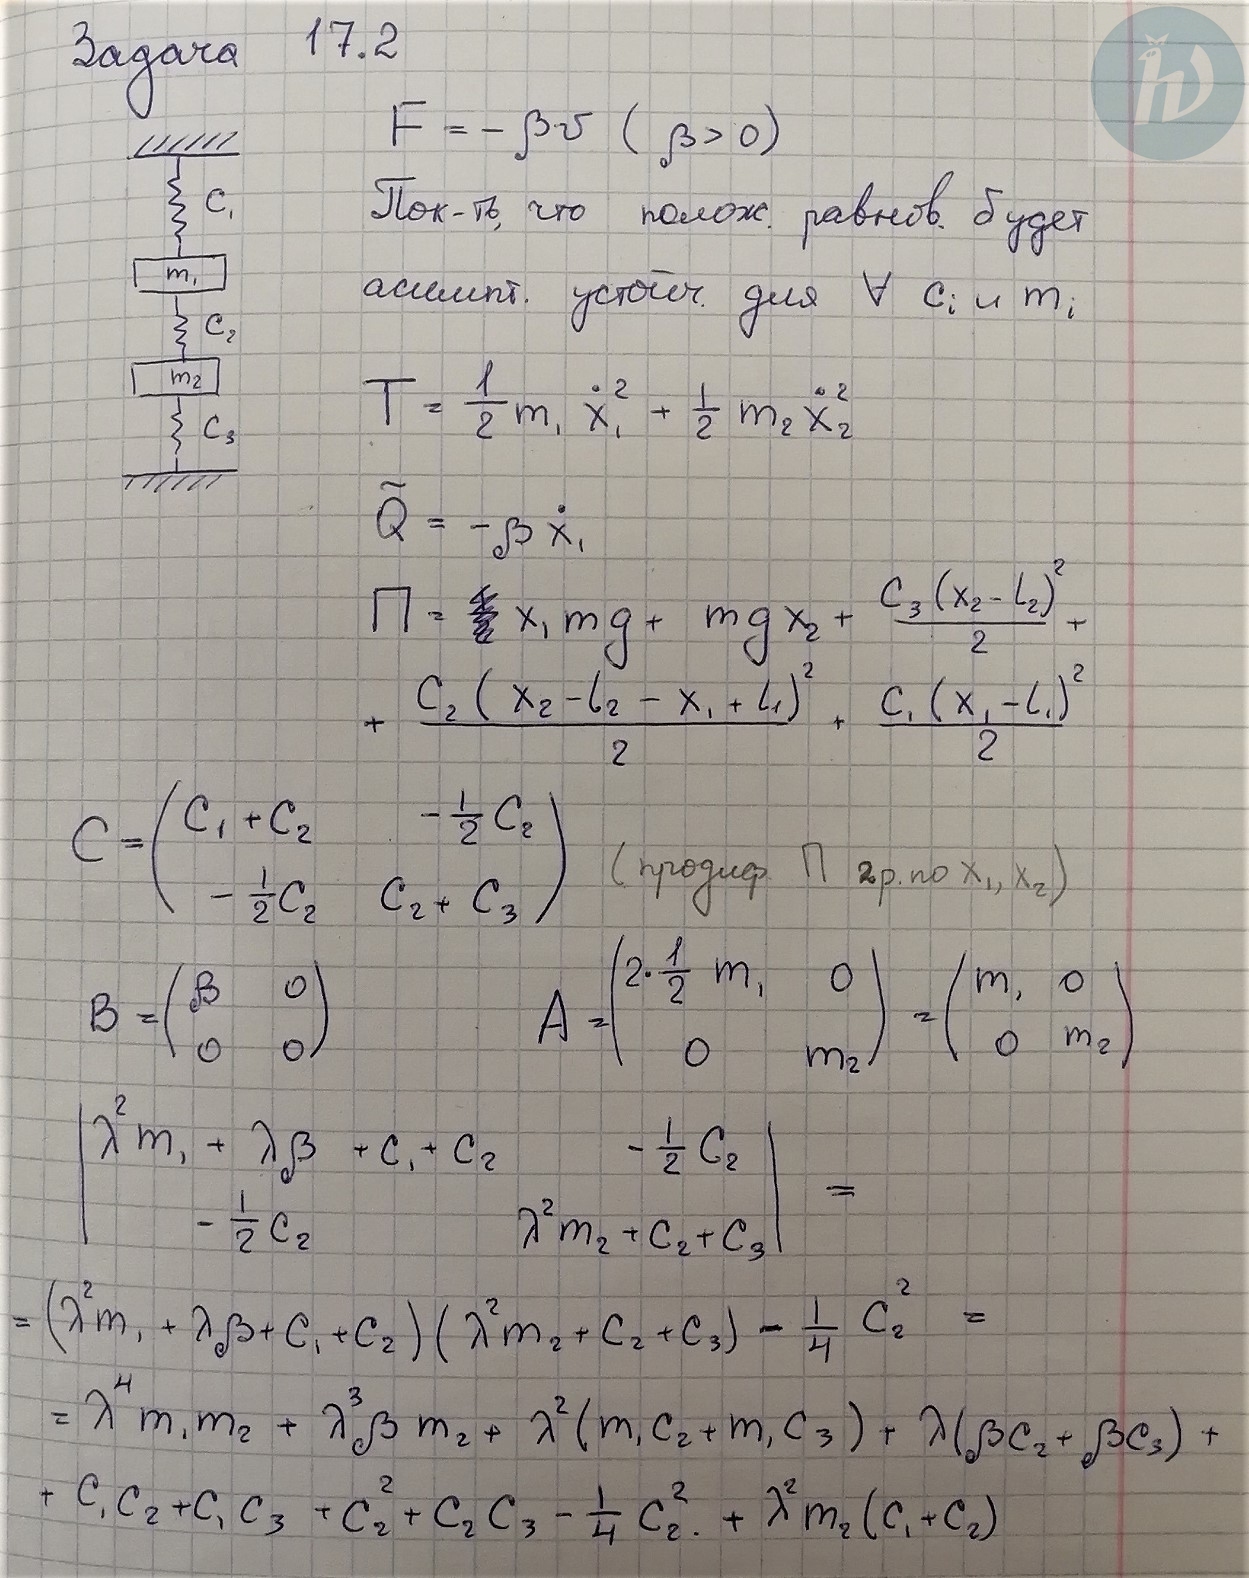 Задача 17.2
F = -βv (β > 0)
Пок-ть, что полож. равнов. будет
асимпт. устойч. для ∀ c_i и m_i
C₁
m₁
C₂
m₂
C₃
T = 1/2 m₁ ẋ₁² + 1/2 m₂ ẋ₂²
Q̃ = -β ẋ₁
П = x₁mg + mgx₂ + C₃(x₂-L₂)²/2 +
+ C₂(x₂-L₂-x₁+L₁)²/2 + C₁(x₁-L₁)²/2
C = (C₁+C₂ -1/2 C₂
-1/2 C₂ C₂+C₃) (продиф. П 2р. по x₁, x₂)
B = (β 0
0 0)
A = (2·1/2 m₁ 0
0 m₂) = (m₁ 0
0 m₂)
|λ²m₁ + λβ + C₁ + C₂ -1/2 C₂
-1/2 C₂ λ²m₂ + C₂ + C₃| =
= (λ²m₁ + λβ + C₁ + C₂)(λ²m₂ + C₂ + C₃) - 1/4 C₂² =
= λ⁴m₁m₂ + λ³βm₂ + λ²(m₁C₂ + m₁C₃) + λ(βC₂ + βC₃) +
+ C₁C₂ + C₁C₃ + C₂² + C₂C₃ - 1/4 C₂². + λ²m₂(C₁+C₂)